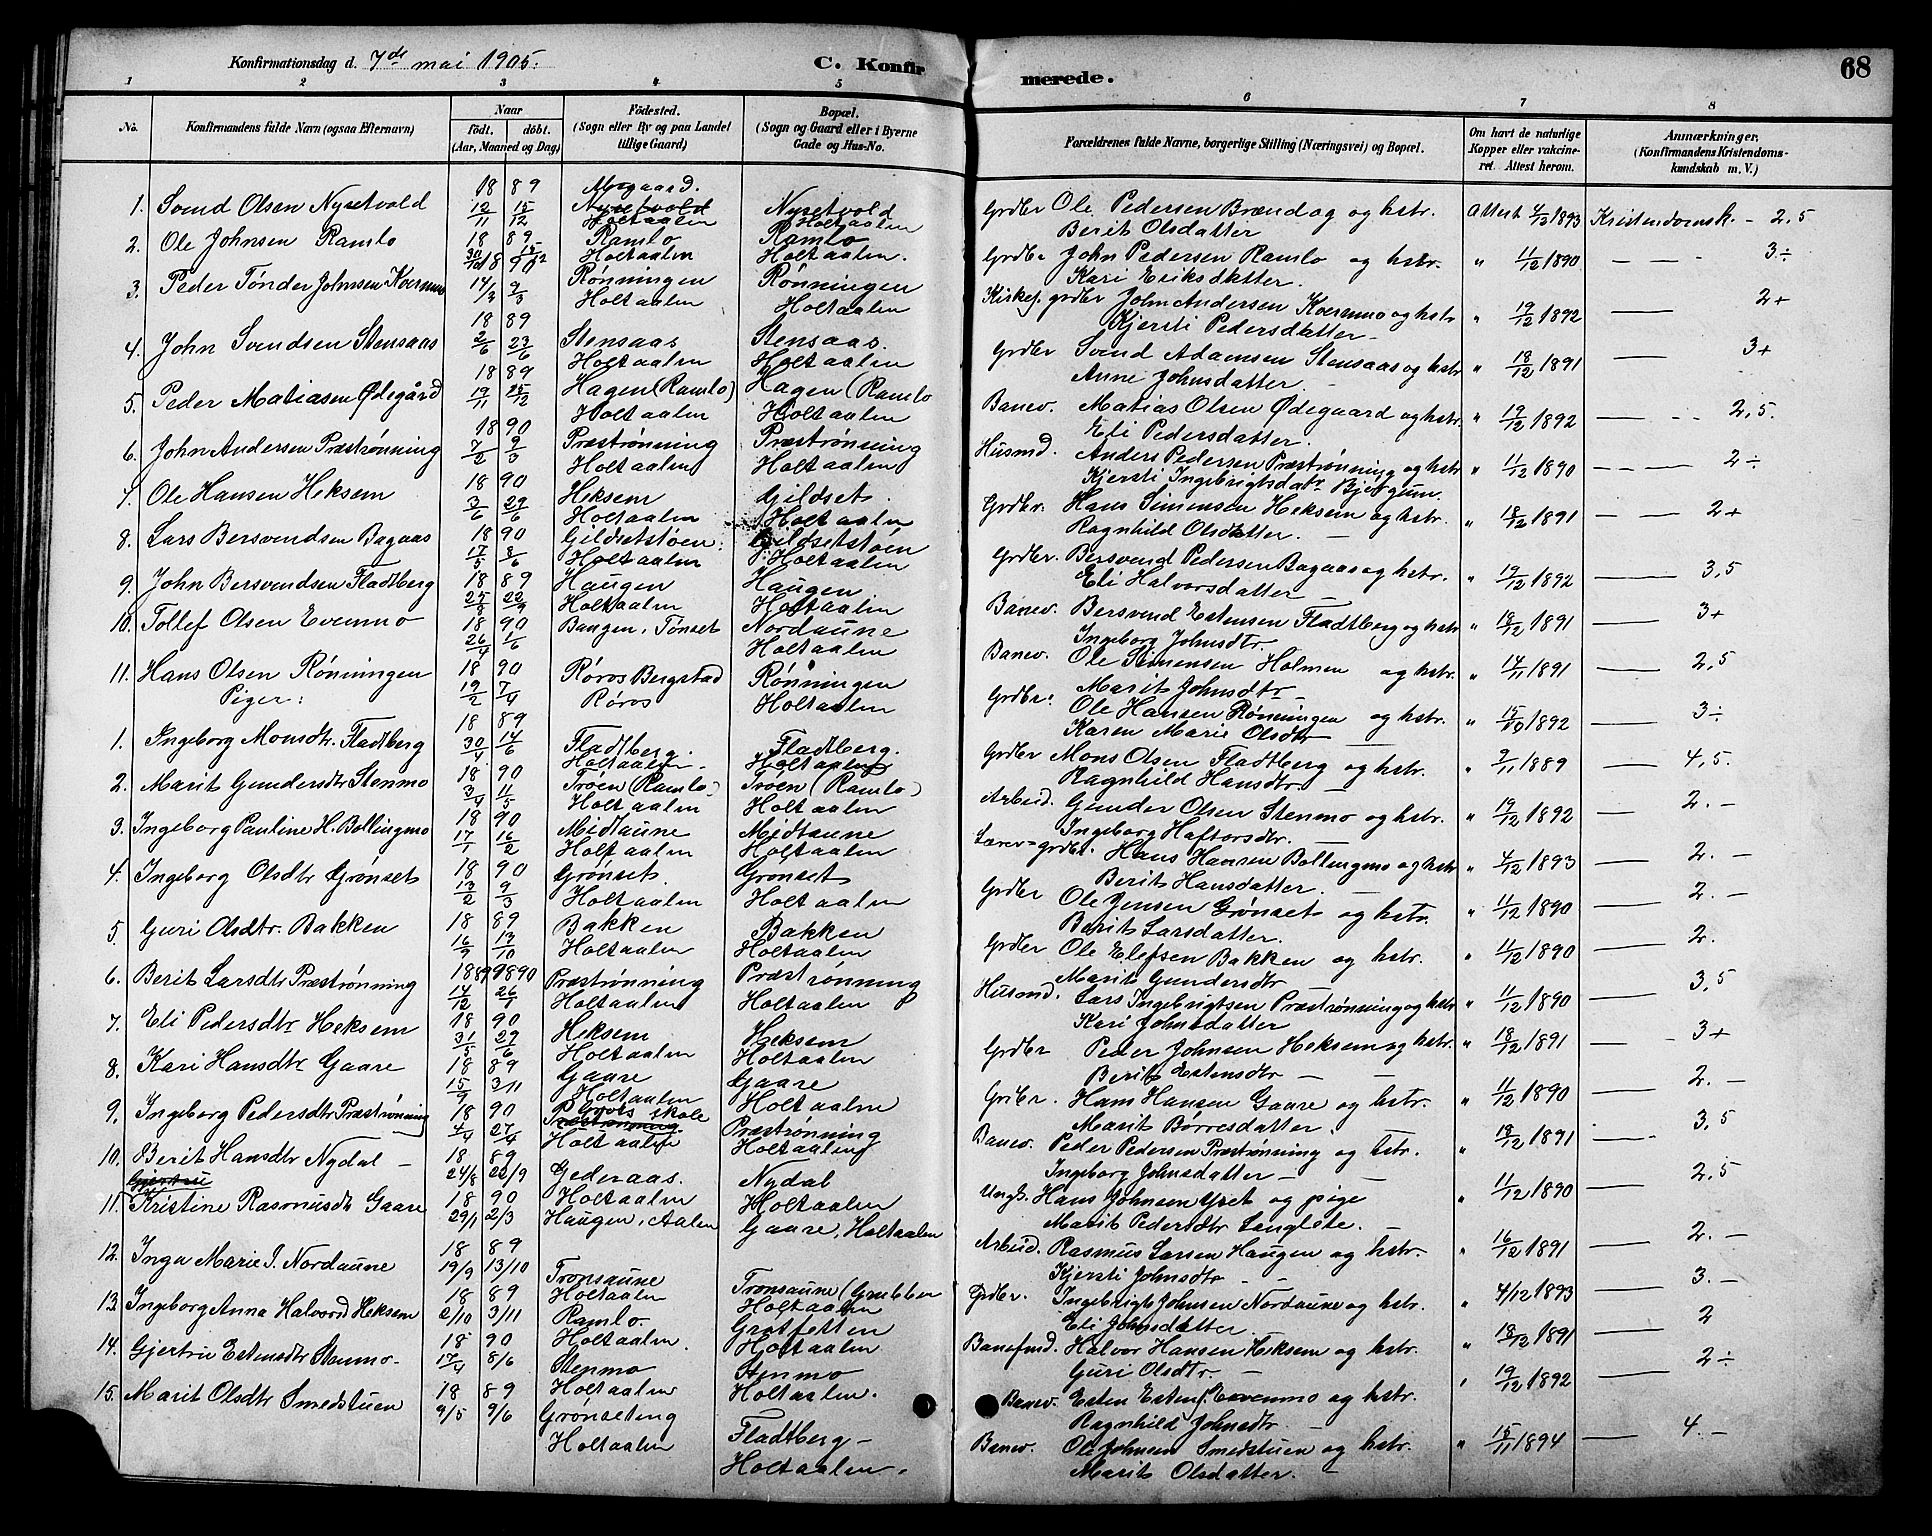 Konfirmationsdag d. 7de mai 1905.
C. Konfir
merede.
68
1 2 3 4 5 6 7 8
No.
Konfirmandens fulde Navn (ogsaa Efternavn)
Naar
födt. döbt.
(Aar, Maaned og Dag)
Födested.
(Sogn eller By og paa Landet
tillige Gaard)
Bopæl.
(Sogn og Gaard eller i Byerne
Gade og Hus-No.
Forældrenes fulde Navne, borgerlige Stilling (Næringsvei) og Bopæl.
Om havt de naturlige
Kopper eller vakcine-
ret. Attest herom.
Anmærkninger,
(Konfirmandens Kristendoms-
kundskab m. V.)
1. Svend Olsen Nysetvold 18 89 12/11 15/12 Nysetvold Holtaalen Nysetvold Holtaalen Grdbr Ole Pedersen Brændag og hstr. Attest 4/3 1893 Kristendomsk. - 2,5
Berit Olsdatter
2. Ole Johnsen Ramlo 18 89 30/10 15/12 Ramlo Holtaalen Ramlo Holtaalen. Grdbr John Pedersen Ramlo og hstr. " 11/12 1890 3÷
Kari Eriksdatter.
3. Peder Tønder Johnsen Kvernmo 18 90 14/3 9/3 Rønningen Holtaalen Rønningen Holtaalen Kirkes. grdbr John Andersen Kvernmo og hstr " 19/12 1892 2+
Kjersti Pedersdatter
4. John Svendsen Stensaas 18 89 2/6 23/6 Stensaas Holtaalen Stensaas. Holtaalen Grdbr Svend Adamsen Stensaas og hstr " 18/12 1891 3+
Anne Johnsdatter.
5. Peder Matiasen Ødegård 18 89 19/11 25/12 Hagen (Ramlo) Holtaalen Hagen (Ramlo Holtaalen Banev. Matias Olsen Ødegaard og hstr. " 19/12 1892 2,5.
Eli Pedersdatter.
6. John Andersen Præstrønning 18 90 7/2 9/3 Præstrønning Holtaalen Præstrønning Holtaalen Husmd. Anders Pedersen Præstrønning og hstr " 11/12 1890 2÷
Kjersti Ingebrigtsdatr Bjergum.
7. Ole Hansen Heksem 18 90 3/6 29/6 Heksem Holtaalen Gildset. Holtaalen Grdbr. Hans Simensen Heksem og hstr. " 18/12 1891 2+
Ragnhild Olsdatter
8. Lars Bersvendsen Bagaas 18 90 17/5 8/6 Gildsetstøen Holtaalen Gildsetstøen Holtaalen Grdbr. Bersvend Pedersen Bagaas og hstr. " 19/12 1892 3,5
Eli Halvorsdatter
9. John Bersvendsen Fladtberg 18 89 25/8 22/9 Haugen Holtaalen Haugen Holtaalen Banev. Bersvend Estensen Fladtberg og hstr " 18/12 1891 3+
Ingeborg Johnsdtr.
10. Tollef Olsen Evenmo 18 90 26/4 1/6 Bangen, Tønset Nordaune Holtaalen Banev. Ole Simensen Holmen og hstr. " 14/11 1891 2,5
Marit Johnsdtr
11. Hans Olsen Rønningen 18 90 19/2 7/4 Røros Bergstad Røros Rønningen Holtaalen Grdbr. Ole Hansen Rønningen og hstr. " 15/10 1892 3÷
Karen Marie Olsdtr
Piger:
1. Ingeborg Monsdtr. Fladtberg 18 89 30/4 14/6 Fladtberg. Holtaalen Fladtberg. Holtaalen Grdbr Mons Olsen Fladtberg og hstr. " 2/11 1889 4,5.
Ragnhild Hansdtr
2. Marit Gundersdtr Stenmo 18 90 3/4 11/5 Trøen (Ramlo) Holtaalen Trøen (Ramlo) Holtaalen Arbeid. Gunder Olsen Stenmo og hstr. " 19/12 1892 2. -
Ingeborg Haftorsdtr.
3. Ingeborg Pauline H. Bollingmo 18 90 17/1 16/2 Midtaune Holtaalen Midtaune Holtaalen Hans Hansen Bollingmo og hstr " 4/12 1893 2. -
Berit Hansdatter.
4. Ingeborg Olsdtr Grønset 18 90 13/2 9/3 Grønset Holtaalen Grønset Holtaalen Grdbr Ole Jensen Grønset og hstr. " 11/12 1890 2. -
Berit Larsdatter.
5. Guri Olsdtr. Bakken 18 89 16/9 13/10 Bakken Holtaalen Bakken Holtaalen Grdbr Ole Elefsen Bakken og hstr. " 11/12 1890 2.
Marit Gundersdtr
6. Berit Larsdtr Præstrønning 1889 1890 14/12 26/1 Præstrønning Holtaalen Præstrønning Holtaalen Husmd. Lars Ingebrigtsen Præstrønning og hstr " 11/12 1890 3,5
Kari Johnsdatter
7. Eli Pedersdtr Heksem 18 90 31/5 29/6 Heksem Holtaalen Heksem Holtaalen Grdbr Peder Johnsen Heksem og hstr. " 18/12 1891 3+
Berit Estensdtr
8. Kari Hansdtr Gaare 18 89 15/9 3/11 Gaare Holtaalen Gaare Holtaalen Grdbr. Hans Hansen Gaare og hstr. " 11/12 1890 2. -
Marit Børresdatter
9. Ingeborg Pedersdtr Præstrønning 18 90 4/4 27/4 skole Præstrønning Holtaalen Præstrønning Holtaalen Banev. Peder Pedersen Præstrønning og hstr. " 18/12 1891 3,5
Ingeborg Johnsdatter
10. Berit Hansdtr Nydal - 18 89 24/8 22/9 Gederaas. Holtaalen Nydal Holtaalen Ungk. Hans Johnsen og pige " 11/12 1890 2,5
Marit Pedersdtr Langlete.
Gjertru
11. Kristine Rasmusdt Gaare 18 90 29/1 2/3 Haugen, Aalen Gaare, Holtaalen Arbeid. Rasmus Larsen Haugen og hstr. " 16/12 1891 2. -
Kjersti Johnsdtr
12. Inga Marie I. Nordaune 18 89 19/9 13/10 Tronsaune Holtaalen Tronsaune (Grubben Holtaalen Grdbr. Ingebrigt Johnsen Nordaune og hstr. " 4/12 1893 3. -
Eli Johnsdatter
13. Ingeborg Anna Halvorsd Heksem 18 89 2/10 3/11 Ramlo Holtaalen Grøtfetten Holtaalen Banefmd. Halvor Hansen Heksem og hstr. " 18/12 1891 2
Guri Olsdtr.
14. Gjertru Estensdtr Stenmo 18 90 17/4 8/6 Stenmo Holtaalen Stenmo Holtaalen. Banev. Esten Estens. Evenmo og hstr. " 19/12 1892 2÷
Ragnhild Johnsdtr
15. Marit Olsdtr Smedstuen 18 89 9/5 9/6 Grønseteng Holtaalen Fladtberg - Holtaalen. Banev. Ole Johnsen Smedstuen og hstr. " 15/11 1894 4. -
Marit Olsdatter.